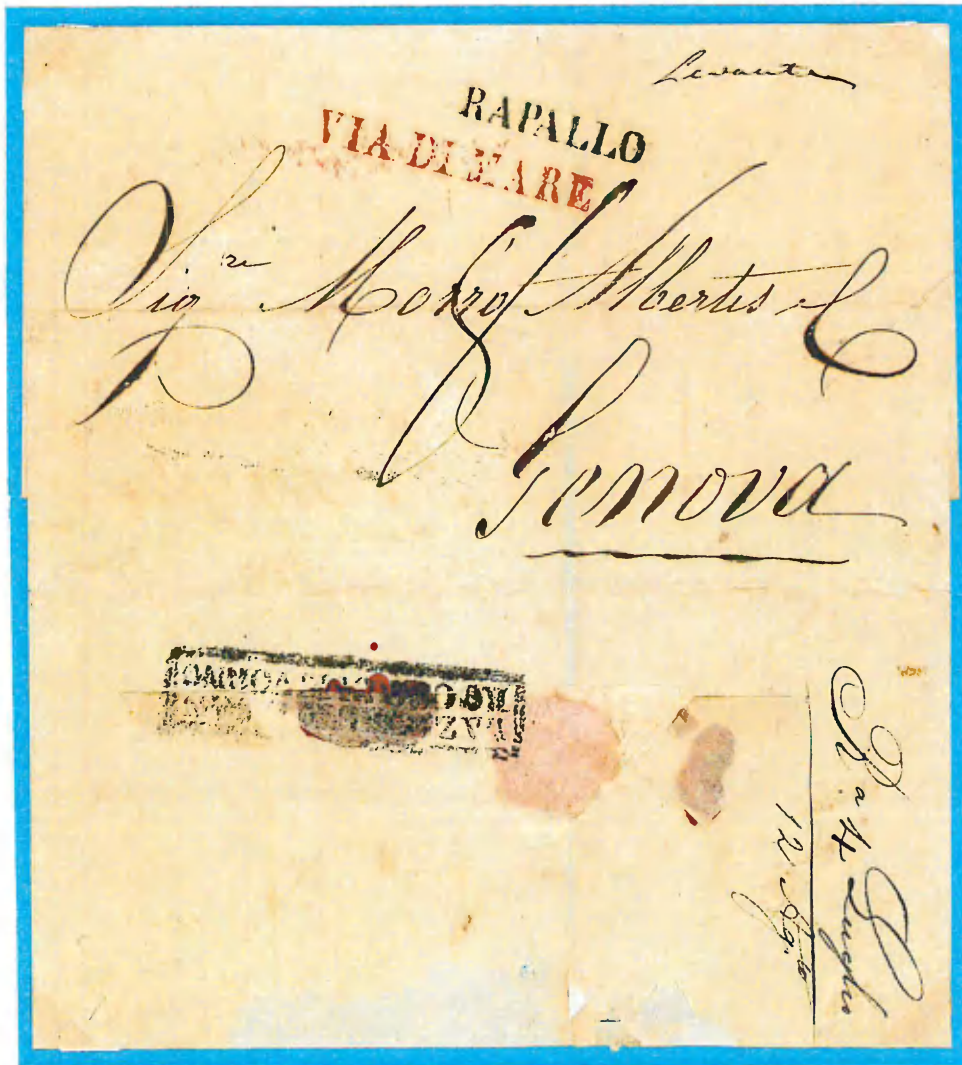 Levante
RAPALLO
VIA DI MARE
Sigri Morro Albertis & C
Genova
R a 4 Luglio
12 Ag.to